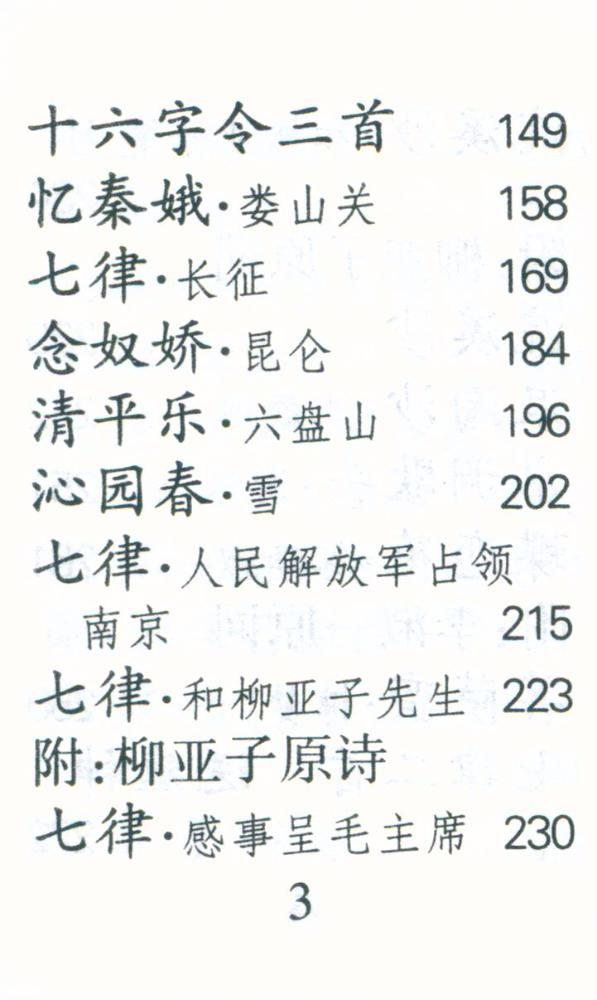 十六字令三首 149
忆秦娥·娄山关 158
七律·长征 169
念奴娇·昆仑 184
清平乐·六盘山 196
沁园春·雪 202
七律·人民解放军占领
南京 215
七律·和柳亚子先生 223
附:柳亚子原诗
七律·感事呈毛主席 230
3